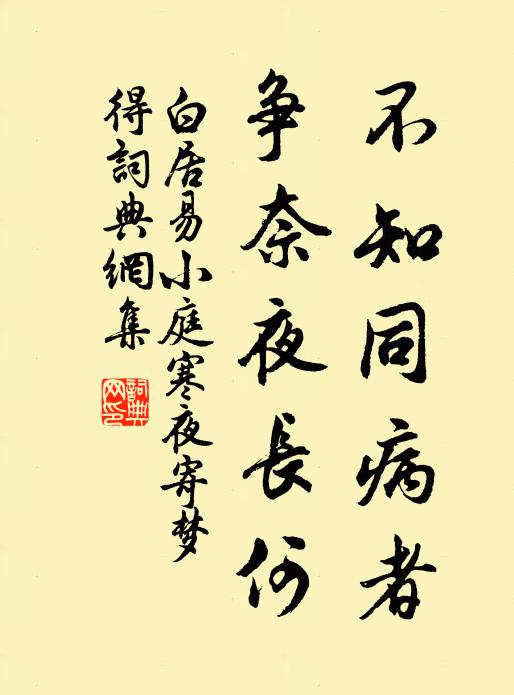 不知同病者
争奈夜長何
白居易小庭寒夜寄梦
得詞典網集
詞典
网印